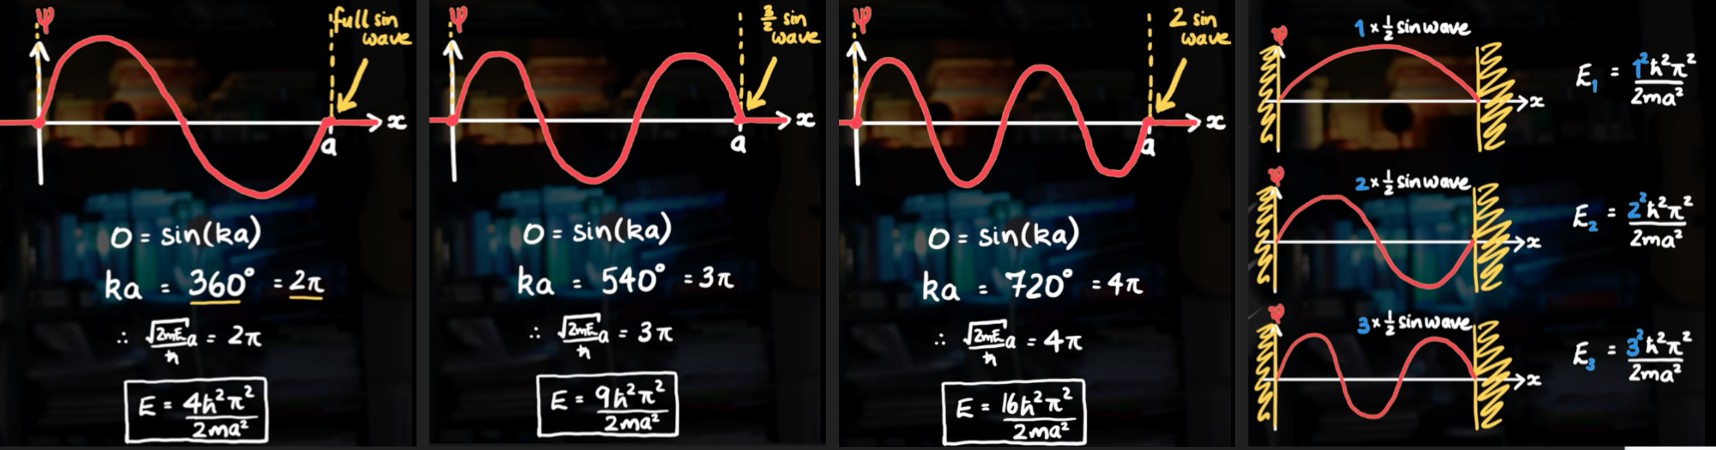 ψ
full sin
wave
x
a
0 = sin(ka)
ka = 360° = 2π
∴ √2mE/ħ a = 2π
E = 4ħ²π²/2ma²
ψ
3/2 sin
wave
x
a
0 = sin(ka)
ka = 540° = 3π
∴ √2mE/ħ a = 3π
E = 9ħ²π²/2ma²
ψ
2 sin
wave
x
a
0 = sin(ka)
ka = 720° = 4π
∴ √2mE/ħ a = 4π
E = 16ħ²π²/2ma²
ψ
1 × 1/2 sin wave
x
E₁ = 1²ħ²π²/2ma²
ψ
2 × 1/2 sin wave
x
E₂ = 2²ħ²π²/2ma²
ψ
3 × 1/2 sin wave
x
E₃ = 3²ħ²π²/2ma²